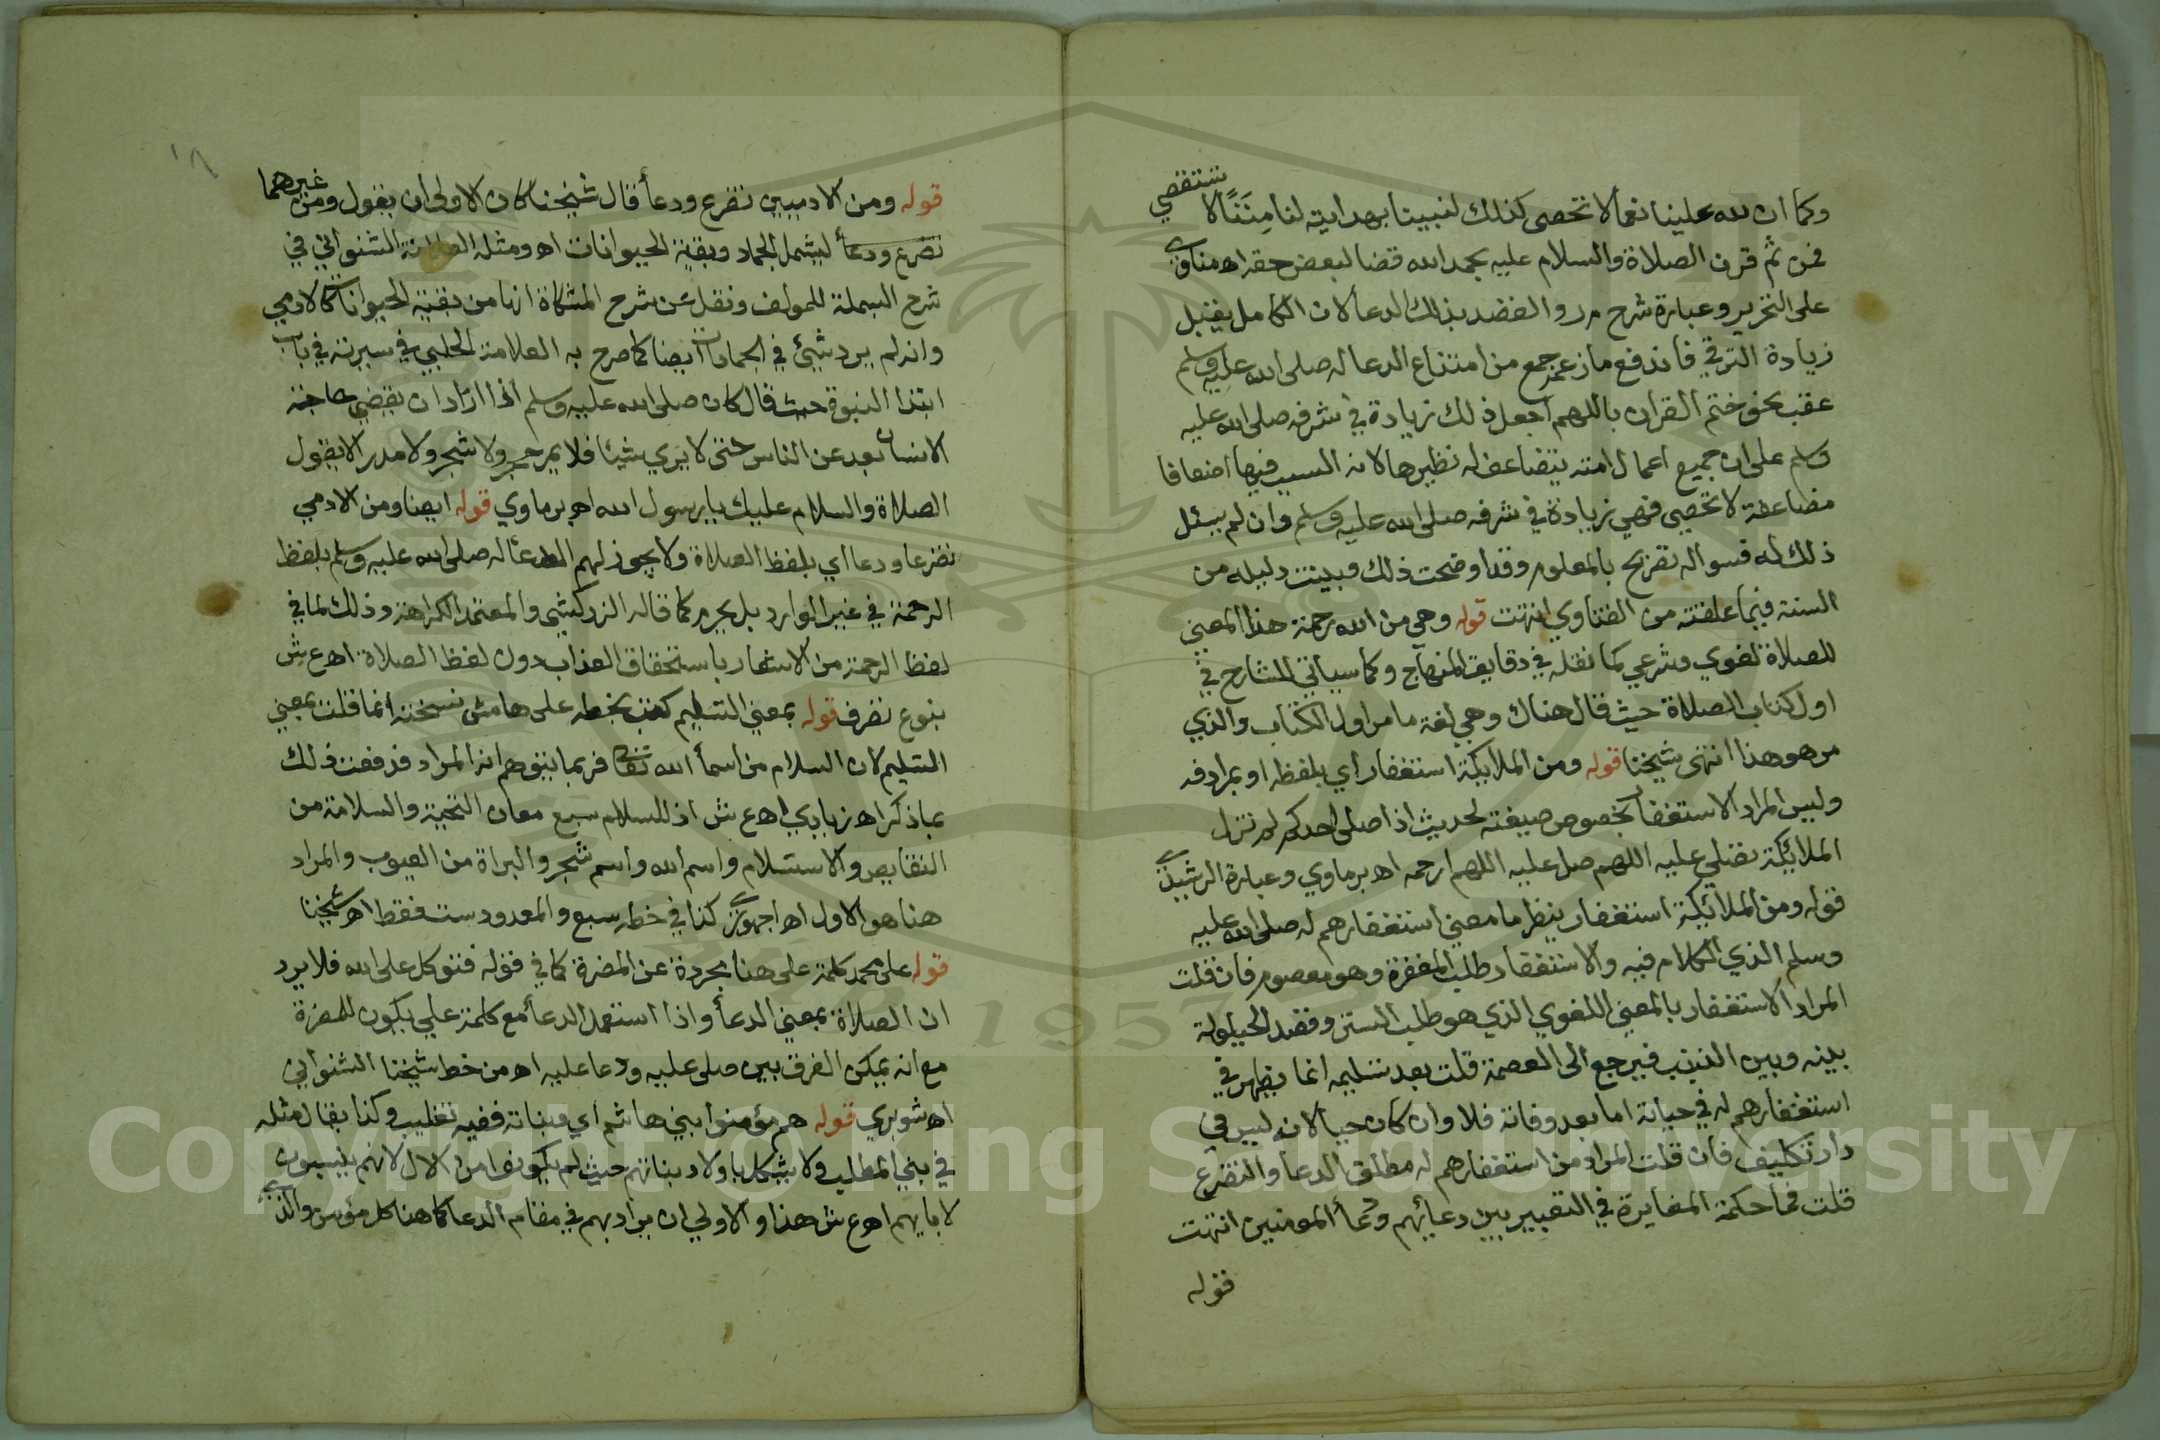 وكما ان لله علينا نعما لا تحصى كذلك لنبينا بهدايته لنا مِنَنًا لا تستقصي
فمن ثم قرن الصلاة والسلام عليه بحمد الله قضا لبعض حقه اه مناوي
على التحرير وعبارة شرح م ر والقصد بذلك الدعا لان الكامل يقبل
زيادة الترقي فاندفع ما زعمه جمع من امتناع الدعا له صلى الله عليه وسلم
عقب نحو ختم القران باللهم اجعل ذلك زيادة في شرفه صلى الله عليه
وسلم على ان جميع اعمال امته يتضاعف له نظيرها لانه السبب فيها اضعافا
مضاعفة لا تحصى فهي زيادة في شرفه صلى الله عليه وسلم وان لم يسئل
ذلك له فسواله تصريح بالمعلوم وقد اوضحت ذلك وبينت دليله من
السنة فيما علقته من الفتاوي انتهت قوله وهي من الله رحمة هذا المعنى
للصلاة لغوي وشرعي كما نقله في دقايق المنهاج وكما سياتي للشارح في
اول كتاب الصلاة حيث قال هناك وهي لغة ما مر اول الكتاب والذي
مر هو هذا انتهى شيخنا قوله ومن الملايكة استغفار اي بلفظه او بمرادفه
وليس المراد الاستغفار بخصوص صيغته لحديث اذا صلى احدكم لم تزل
الملائكة تصلي عليه اللهم صل عليه اللهم ارحمه اه برماوي وعبارة الرشيدي
قوله ومن الملائكة استغفار ينظر ما معنى استغفارهم له صلى الله عليه
وسلم الذي الكلام فيه والاستغفار طلب المغفرة وهو معصوم فان قلت
المراد الاستغفار بالمعنى اللغوي الذي هو طلب الستر وقصد الحيلولة
بينه وبين الذنب فيرجع الى العصمة قلت بعد تسليمه انما يظهر في
استغفارهم له في حياته اما بعد وفاته فلا وان كان حيا لانه ليس في
دار تكليف فان قلت المراد من استغفارهم له مطلق الدعا والتضرع
قلت فما حكمة المغايرة في التعبير بين دعائهم ودعأ المومنين انتهت
قوله
قوله ومن الادميين تضرع ودعأ قال شيخنا كان الاولى ان يقول ومن غيرهما
تضرع ودعأ ليشمل الجماد وبقية الحيوانات اه ومثله العلامة الشنواني في
شرح البسملة للمولف ونقل عن شرح المشكاة انها من بقية الحيوانات كالادمي
وانه لم يرد شيئ في الجمادات ايضا كما صرح به العلامة الحلبي في سيرته في باب
ابتدا النبوة حيث قال كان صلى الله عليه وسلم اذا اراد ان يقضي حاجته
الانسان بعد عن الناس حتى لا يرى شيئا فلا يمر بحجر ولا شجر ولا مدر الا يقول
الصلاة والسلام عليك يا رسول الله اه برماوي قوله ايضا ومن الادمي
تضرعا ودعا اي بلفظ الصلاة ولا يجوز لهم الدعا له صلى الله عليه وسلم بلفظ
الرحمة في غير الوارد بل يحرم كما قاله الزركشي والمعتمد الكراهة وذلك لما في
لفظ الرحمة من الاشعار باستحقاق العذاب دون لفظ الصلاة اه ع ش
بنوع تصرف قوله بمعنى التسليم كتب بخطه على هامش نسخته انما قلت بمعنى
التسليم لان السلام من اسمأ الله تعالى فربما يتوهم انه المراد فدفعت ذلك
بما ذكر اه زيادي اه ع ش اذ للسلام سبع معان التحية والسلامة من
النقايص والاستسلام واسم الله واسم شجر والبراة من العيوب والمراد
هنا هو الاول اه اجهوري كذا في خطه سبع والمعدود ست فقط اه شيخنا
قوله على محمد كلمة على هنا مجردة عن المضرة كما في قوله فتوكل على الله فلا يرد
ان الصلاة بمعنى الدعأ واذا استعمل الدعأ مع كلمة على يكون للمضرة
مع انه يمكن الفرق بين صلى عليه ودعا عليه اه من خط شيخنا الشنواني
اه شوبري قوله هم مؤمنوا بني هاشم اي وبناته ففيه تغليب وكذا يقال مثله
في بني المطلب ولا يشكل باولاد بناتهم حيث لم يكونوا من الال لانهم ينسبون
لابايهم اه ع ش هذا والاولى ان يراد بهم في مقام الدعا كما هنا كل مؤمن والذي
1957
Copyright © King Saud University